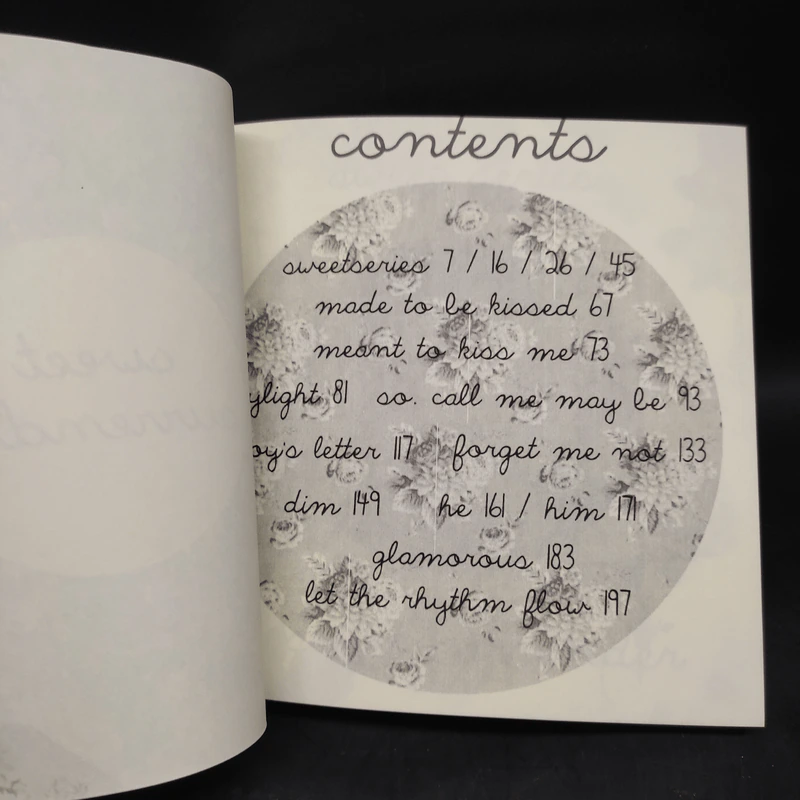 contents
sweetseries 7 / 16 / 26 / 45
made to be kissed 67
meant to kiss me 73
ylight 81 so. call me may be 93
oy's letter 117 forget me not 133
dim 149 he 161 / him 171
glamorous 183
let the rhythm flow 197
sweet